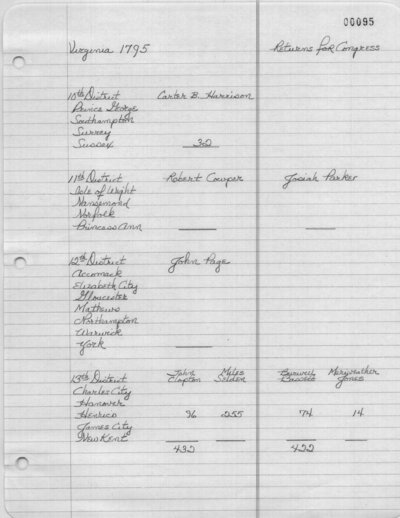 00095
Virginia 1795 Returns for Congress
10th District Carter B. Harrison
Prince George
Southampton
Surrey
Sussex 30
11th District Robert Cowper Josiah Parker
Isle of Wight
Nansemond
Norfolk
Princess Ann
12th District John Page
Accomack
Elizabeth City
Gloucester
Mathews
Northampton
Warwick
York
13th District John Clopton Miles Selden Burwell Bassett Meryweather Jones
Charles City
Hanover
Henrico 96 255 74 14
James City
New Kent
432 422